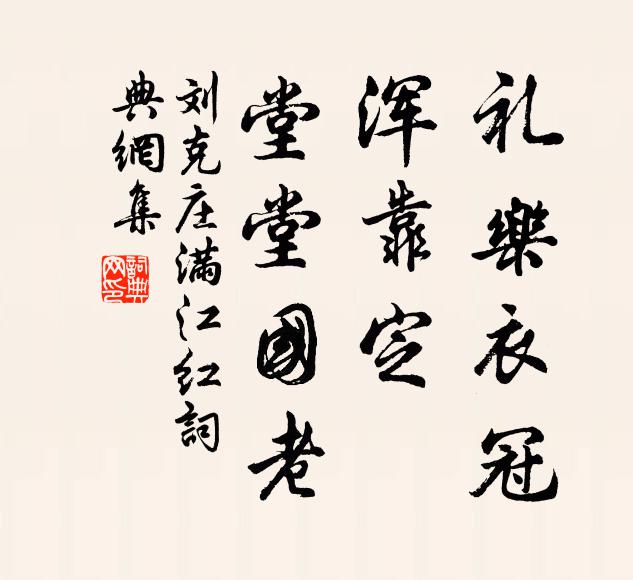 礼樂衣冠
浑靠定
堂堂國老
刘克庄满江红詞
典網集
詞典網印